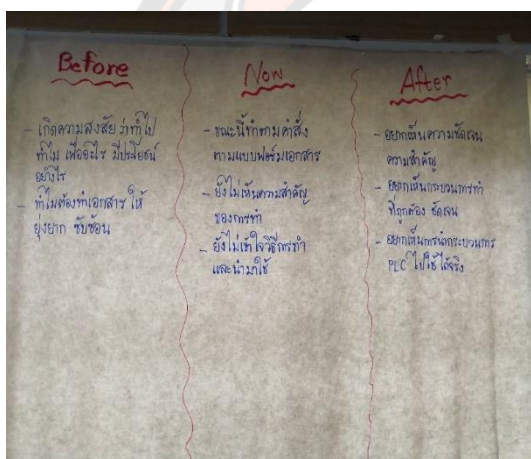 Before
- เกิดความสงสัย ว่าทำไป
ทำไม เพื่ออะไร มีประโยชน์
อย่างไร
- ทำไมต้องทำเอกสาร ให้
ยุ่งยาก ซับซ้อน
Now
- ขณะนี้ทำตามคำสั่ง
ตามแบบฟอร์มเอกสาร
- ยังไม่เห็นความสำคัญ
ของการทำ
- ยังไม่เข้าใจวิธีการทำ
และนำมาใช้
After
- อยากเห็นความชัดเจน
ความสำคัญ
- อยากเห็นกระบวนการทำ
ที่ถูกต้อง ชัดเจน
- อยากเห็นการนำกระบวนการ
PLC ไปใช้ได้จริง